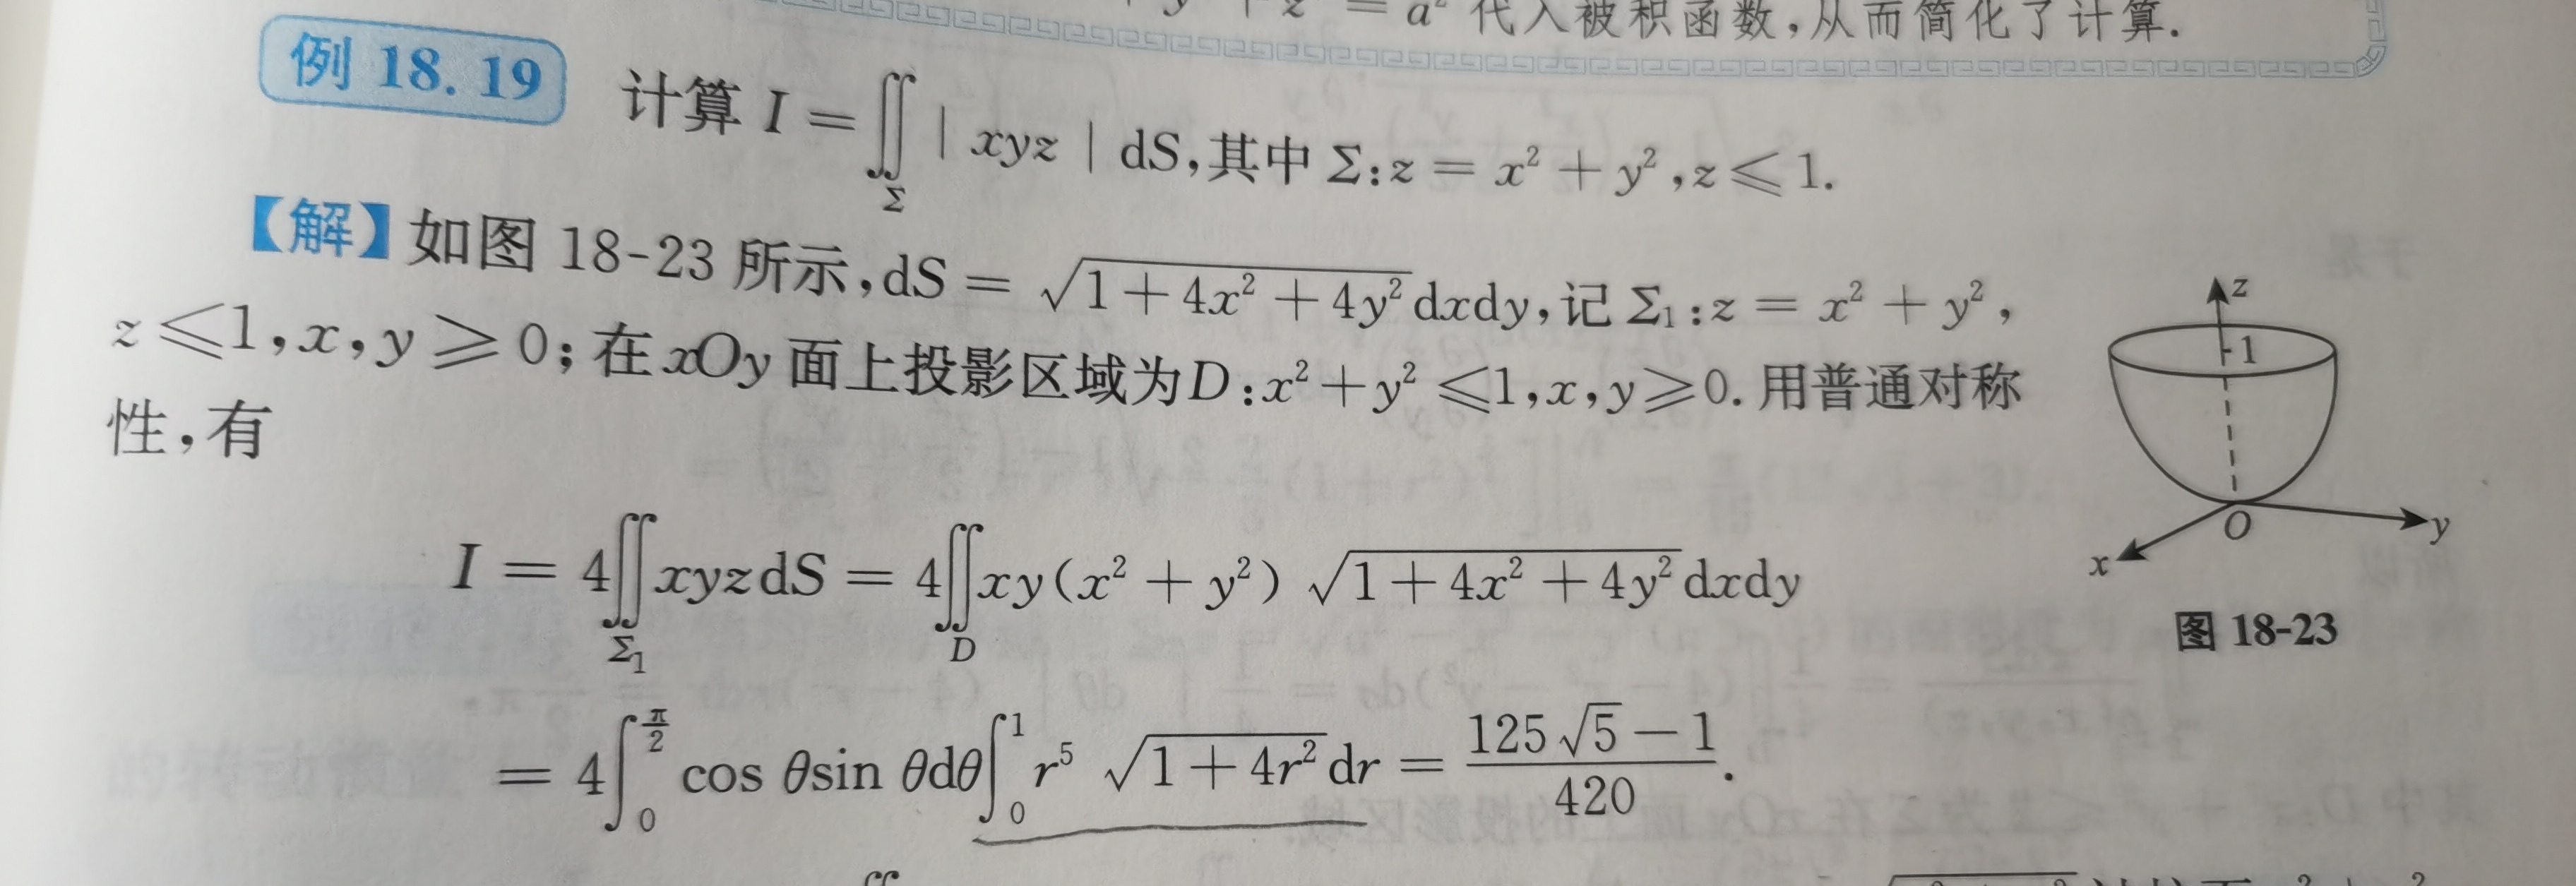 y z = a² 代入被积函数,从而简化了计算.
例 18.19 计算 I = ∬_Σ | xyz | dS,其中 Σ:z = x² + y²,z ⩽ 1.
【解】如图 18-23 所示,dS = √(1 + 4x² + 4y²) dxdy,记 Σ₁:z = x² + y²,
z ⩽ 1,x,y ⩾ 0;在 xOy 面上投影区域为 D:x² + y² ⩽ 1,x,y ⩾ 0. 用普通对称
性,有
I = 4∬_Σ₁ xyz dS = 4∬_D xy(x² + y²) √(1 + 4x² + 4y²) dxdy
= 4∫₀^(π/2) cos θsin θdθ∫₀¹ r⁵ √(1 + 4r²) dr = (125√5 − 1)/420.
z
1
O
y
x
图 18-23